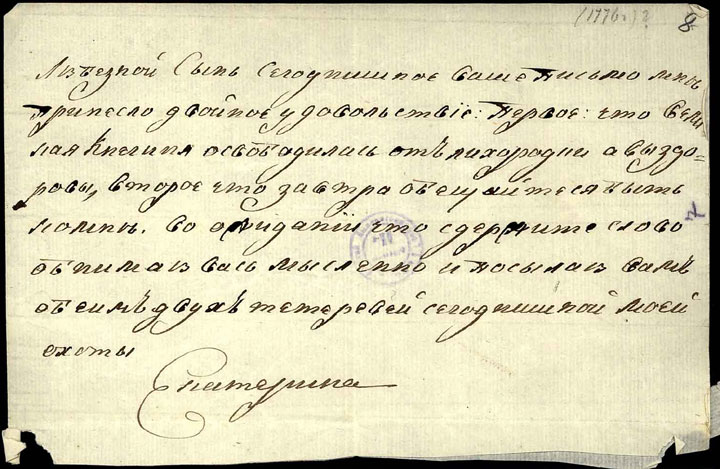 (1776г)?
8
Любезной Сынъ Сегоднишное ваше письмо мнѣ
принесло двойное удовольствiе: первое: что Вели
кая Княгиня освобадилась отъ лихородки а вы здо-
ровы, второе что завтра обѣщаитеся быть
ко мнѣ. Во ожиданiи что сдержите слово
обнимаю васъ мысленно и посылаю вамъ
обеимъ двухъ тетеревей сегоднишной моей
охоты
Екатерина